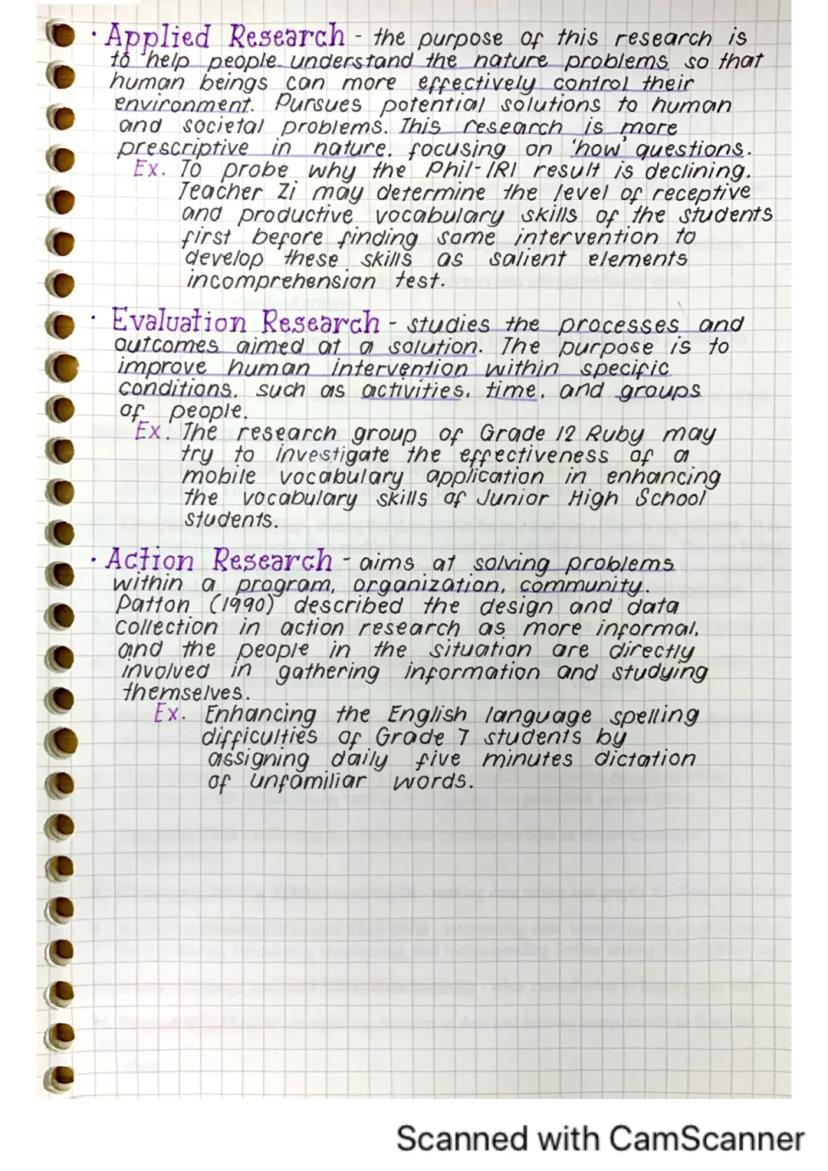 · Applied Research - the purpose of this research is
to help people understand the nature problems so that
human beings can more effectively control their
environment. Pursues potential solutions to human
and societal problems. This research is more
prescriptive in nature, focusing on 'how' questions.
Ex. To probe why the Phil-IRI result is declining.
Teacher Zi may determine the level of receptive
and productive vocabulary skills of the students
first before finding some intervention to
develop these skills as salient elements
incomprehension test.
· Evaluation Research - studies the processes and
outcomes aimed at a solution. The purpose is to
improve human intervention within specific
conditions, such as activities, time, and groups
of people.
Ex. The research group of Grade 12 Ruby may
try to investigate the effectiveness of a
mobile vocabulary application in enhancing
the vocabulary skills of Junior High School
students.
· Action Research - aims at solving problems
within a program, organization, community.
Patton (1990) described the design and data
collection in action research as more informal,
and the people in the situation are directly
involved in gathering information and studying
themselves.
Ex. Enhancing the English language spelling
difficulties of Grade 7 students by
assigning daily five minutes dictation
of unfamiliar words.
Scanned with CamScanner